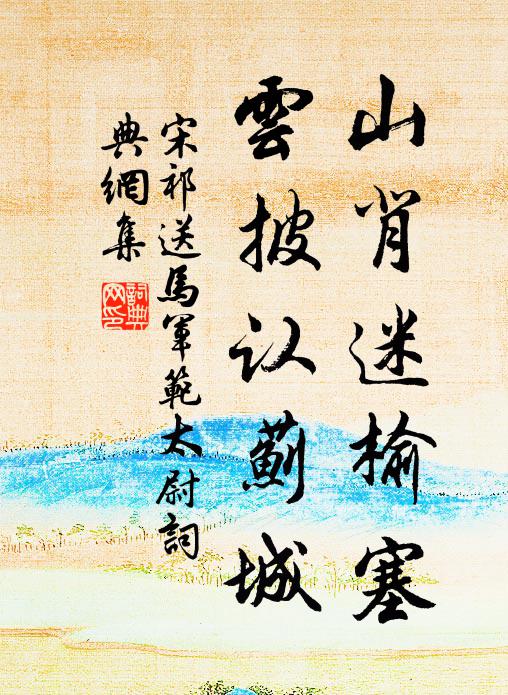 山肖迷榆塞
雲披认薊城
宋祁送馬軍範太尉詞
典網集
詞典
网印